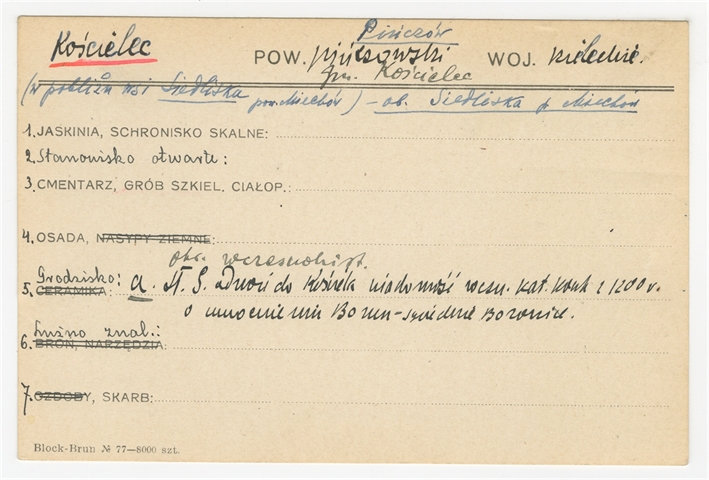 Pińczów
Kościelec POW. pińczowski WOJ. kieleckie.
gm. Kościelec
(w pobliżu wsi Siedliska pow. Miechów) – ob. Siedliska p. Miechów
1. JASKINIA, SCHRONISKO SKALNE:
2. Stanowisko otwarte:
3. CMENTARZ, GRÓB SZKIEL. CIAŁOP.:
4. OSADA, NASYPY ZIEMNE:
obr. wczesnohist.
Grodzisko: a. St. S. odnosi do Kościela wiadomość roczn. kat. krak z 1200 r.
5. CERAMIKA:
o umocnieniu
Luźno znal.:
6. BROŃ, NARZĘDZIA:
7. OZDOBY, SKARB:
Block-Brun № 77—8000 szt.